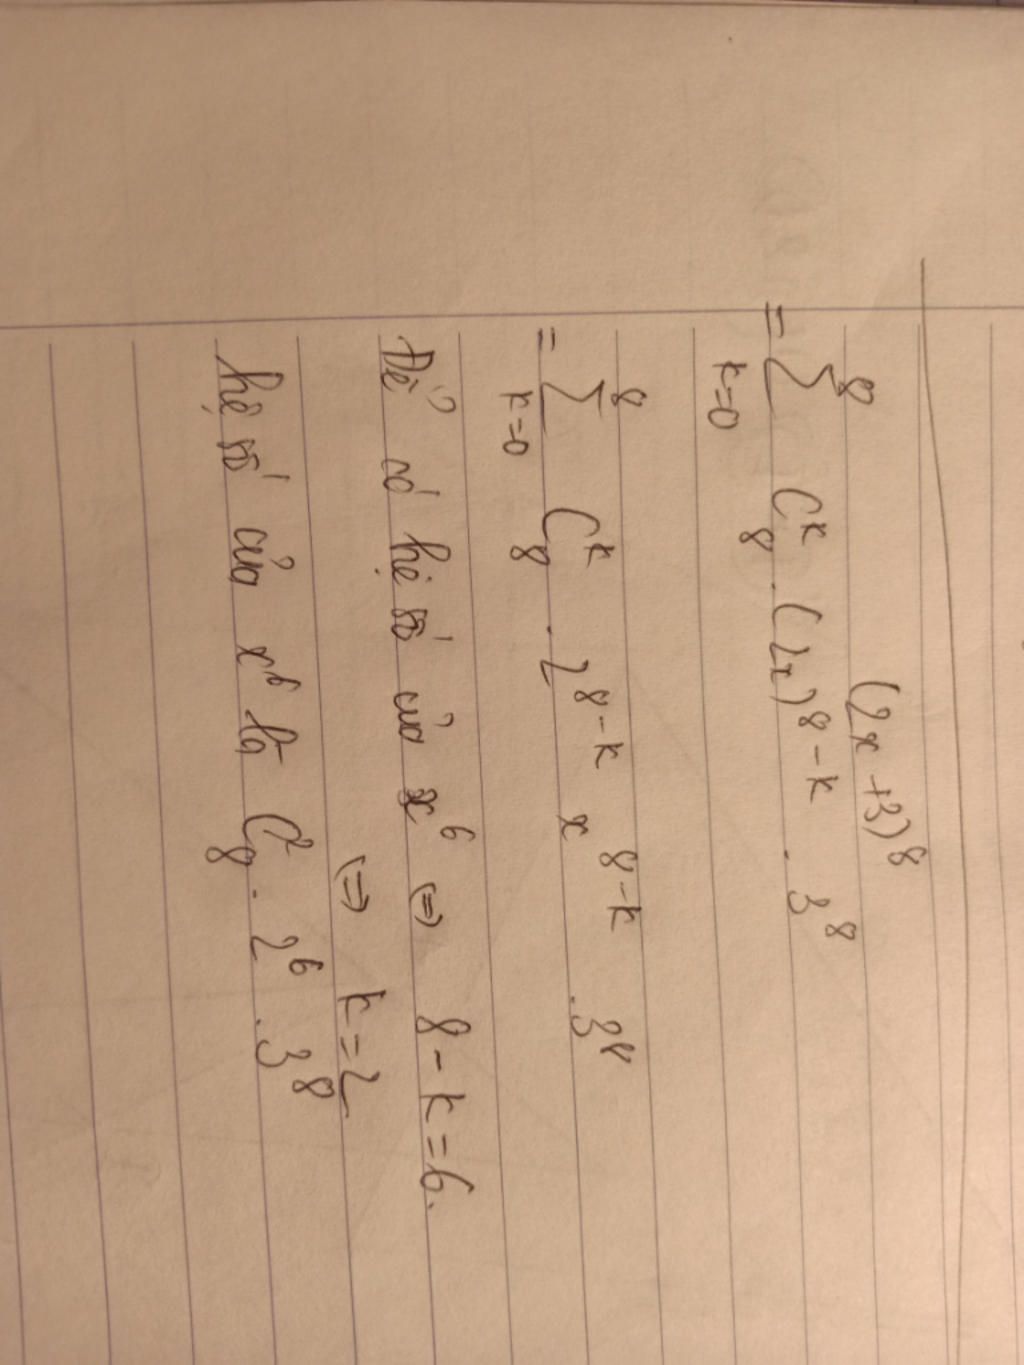 (2x + 3)^8
= \sum_{k=0}^{8} C_8^k . (2x)^{8-k} . 3^8
= \sum_{k=0}^{8} C_8^k . 2^{8-k} x^{8-k} . 3^8
Để có hệ số của x^6 (=) 8 - k = 6.
(=) k = 2
hệ số của x^6 là C_8^2 . 2^6 . 3^8